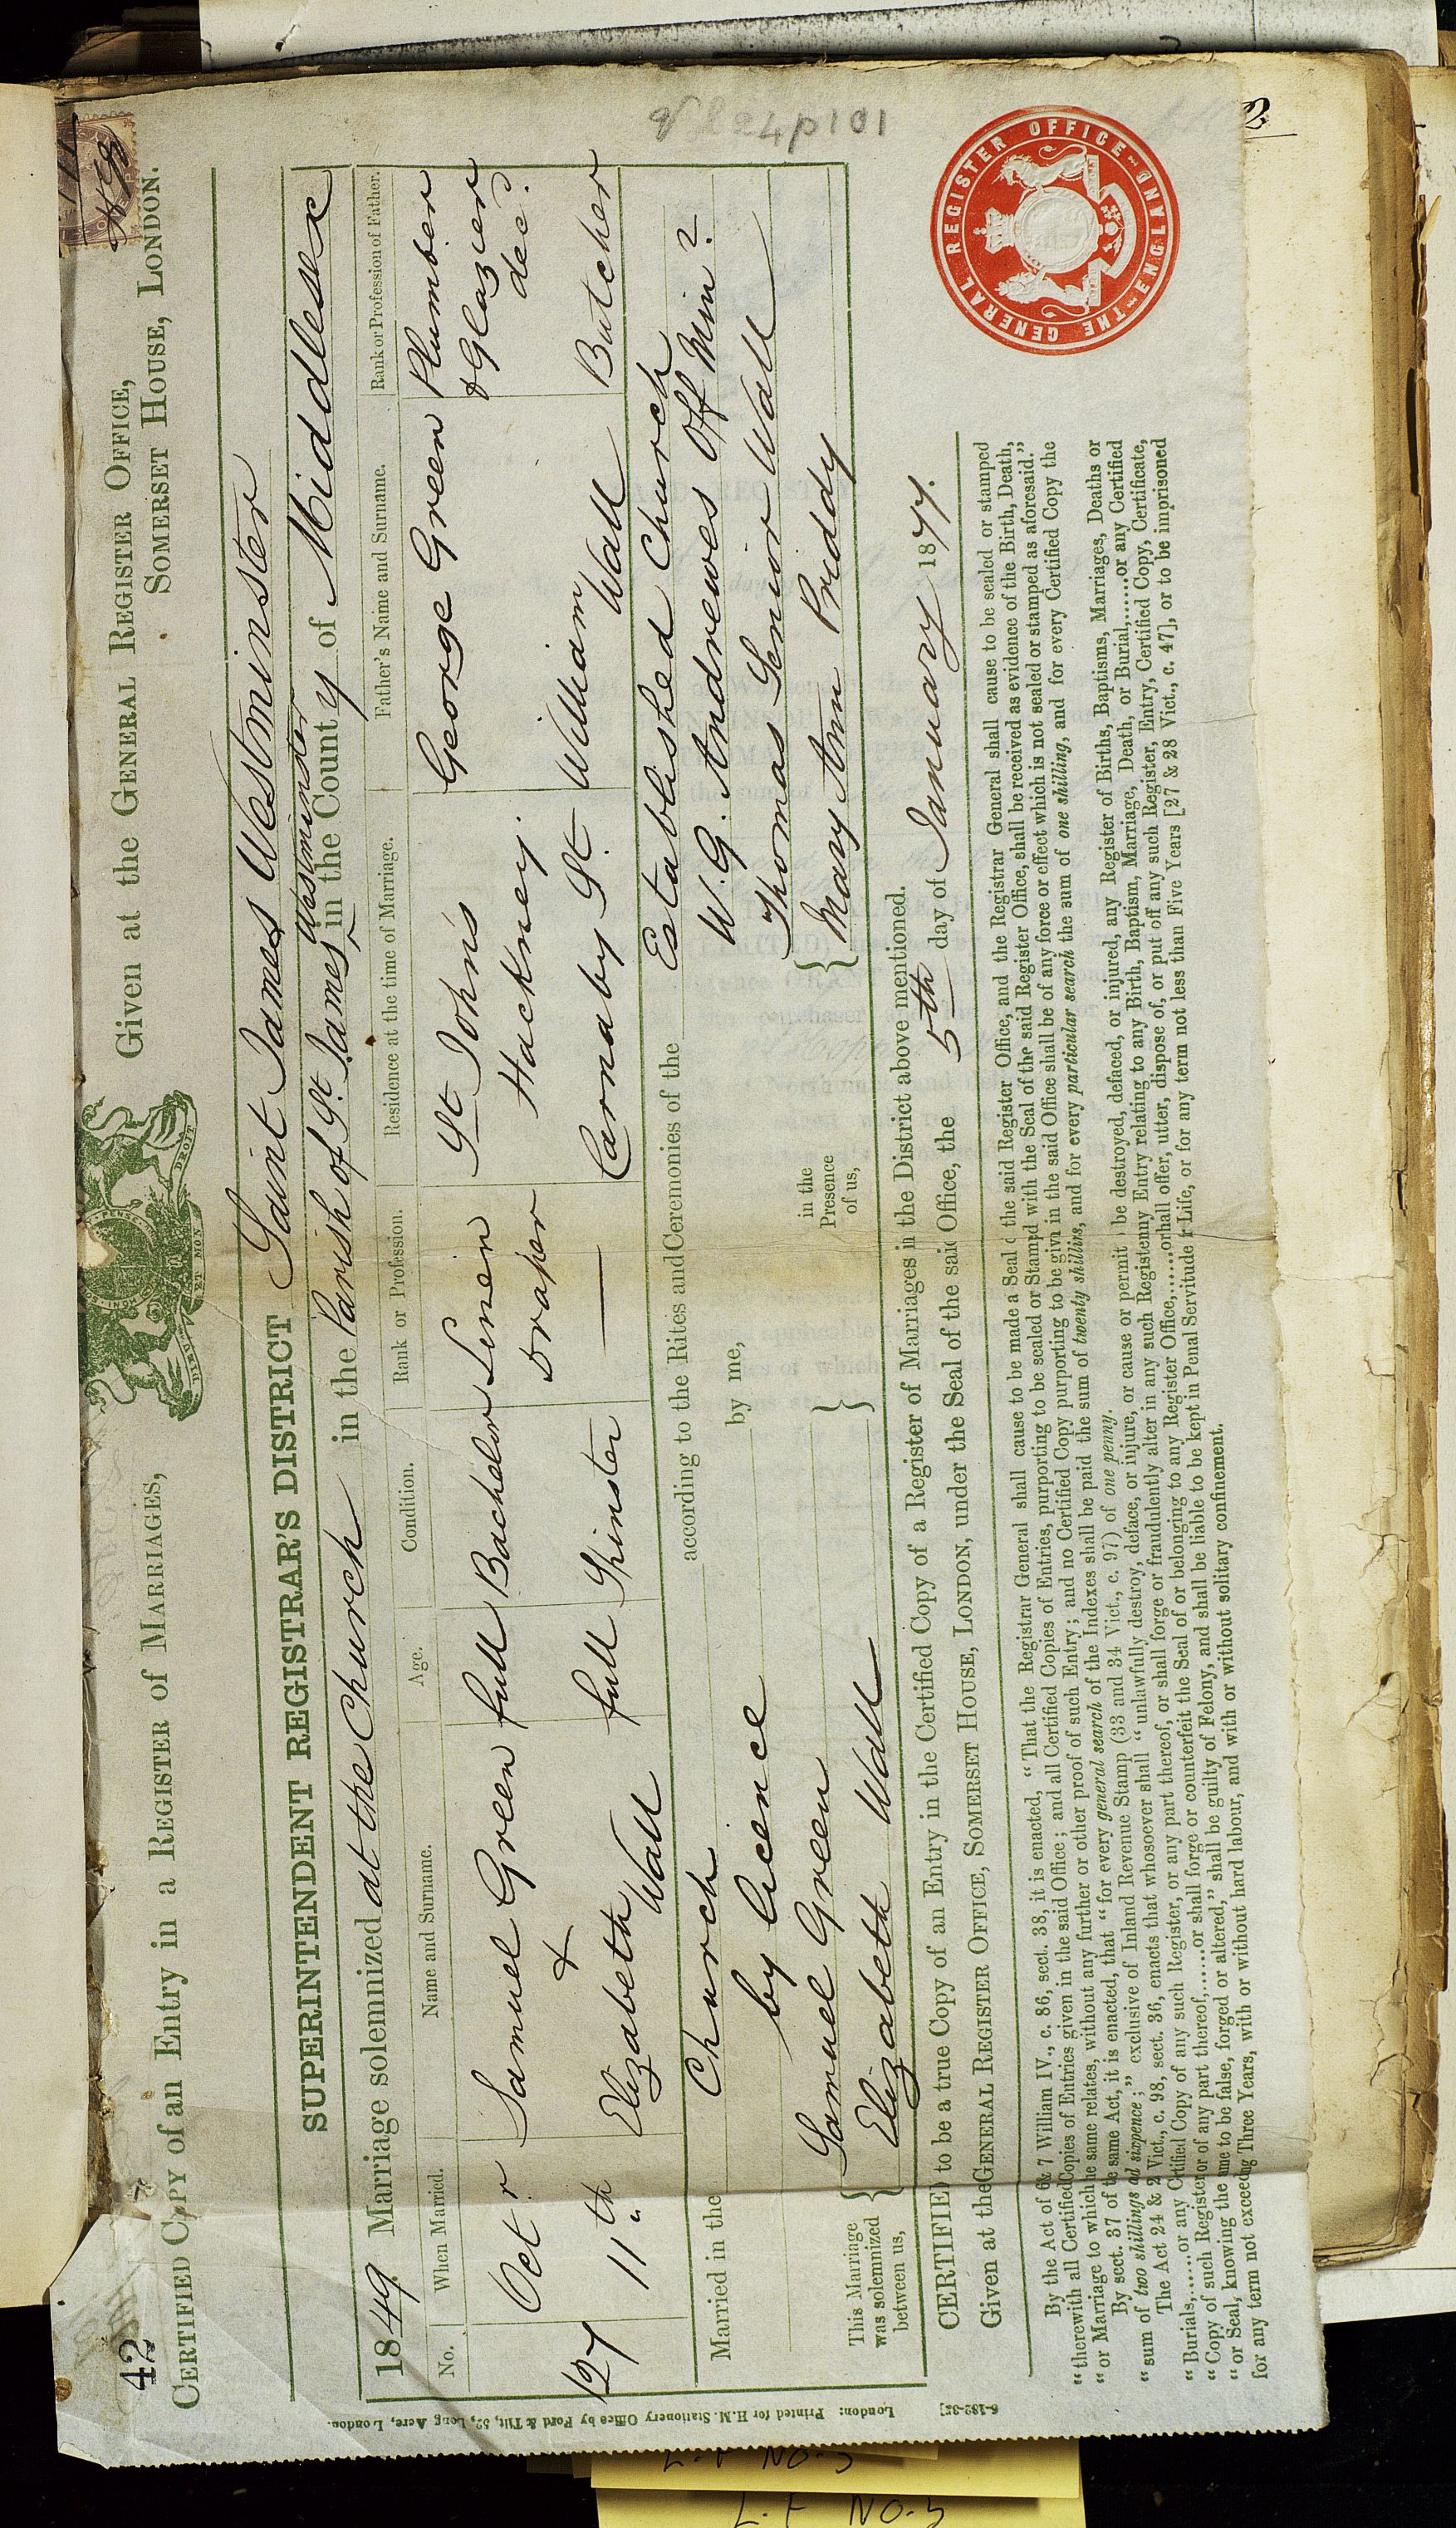 42
CERTIFIED COPY of an Entry in a REGISTER OF MARRIAGES,
Given at the GENERAL REGISTER OFFICE,
SOMERSET HOUSE, LONDON.
DIEU ET MON DROIT
SUPERINTENDENT REGISTRAR'S DISTRICT Saint James Westminster
1849. Marriage solemnized at the Church in the Parish of St. James Westminster in the County of Middlesex
No. When Married. Name and Surname. Age. Condition. Rank or Profession. Residence at the time of Marriage. Father's Name and Surname. Rank or Profession of Father.
127 Octr 11th
Samuel Green full Bachelor Linen Draper St Johns Hackney. George Green Plumber & Glazier decd.
&
Elizabeth Wall full Spinster — Carnaby St. William Wall Butcher
Married in the Church according to the Rites and Ceremonies of the Established Church
by licence by me, W. G. Andrewes Off Minr.
This Marriage was solemnized between us,
Samuel Green
Elizabeth Wall
in the Presence of us,
Thomas Senior Wall
Mary Ann Priddy
CERTIFIED to be a true Copy of an Entry in the Certified Copy of a Register of Marriages in the District above mentioned.
Given at the GENERAL REGISTER OFFICE, SOMERSET HOUSE, LONDON, under the Seal of the said Office, the 5th day of January 1877.
By the Act of 6 & 7 William IV., c. 86, sect. 38, it is enacted, "That the Registrar General shall cause to be made a Seal of the said Register Office, and the Registrar General shall cause to be sealed or stamped
"therewith all Certified Copies of Entries given in the said Office; and all Certified Copies of Entries, purporting to be sealed or Stamped with the Seal of the said Register Office, shall be received as evidence of the Birth, Death,
"or Marriage to which the same relates, without any further or other proof of such Entry; and no Certified Copy purporting to be given in the said Office shall be of any force or effect which is not sealed or stamped as aforesaid."
By sect. 37 of the same Act, it is enacted, that "for every general search of the Indexes shall be paid the sum of twenty shillings, and for every particular search the sum of one shilling, and for every Certified Copy the
"sum of two shillings and sixpence;" exclusive of Inland Revenue Stamp (33 and 34 Vict., c. 97) of one penny.
The Act 24 & 25 Vict., c. 98, sect. 36, enacts that whosoever shall "unlawfully destroy, deface, or injure, or cause or permit to be destroyed, defaced, or injured, any Register of Births, Baptisms, Marriages, Deaths or
"Burials,......or any Certified Copy of any such Register, or any part thereof, or shall forge or fraudulently alter in any such Register any Entry relating to any Birth, Baptism, Marriage, Death, or Burial,......or any Certified
"Copy of such Register or of any part thereof,......or shall forge or counterfeit the Seal of or belonging to any Register Office,......or shall offer, utter, dispose of, or put off any such Register, Entry, Certified Copy, Certificate,
"or Seal, knowing the same to be false, forged or altered," shall be guilty of Felony, and shall be liable to be kept in Penal Servitude for Life, or for any term not less than Five Years [27 & 28 Vict., c. 47], or to be imprisoned
for any term not exceeding Three Years, with or without hard labour, and with or without solitary confinement.
THE GENERAL REGISTER OFFICE ENGLAND
London: Printed for H.M. Stationery Office by Ford & Tilt, 52, Long Acre, London.
L.F NO.5